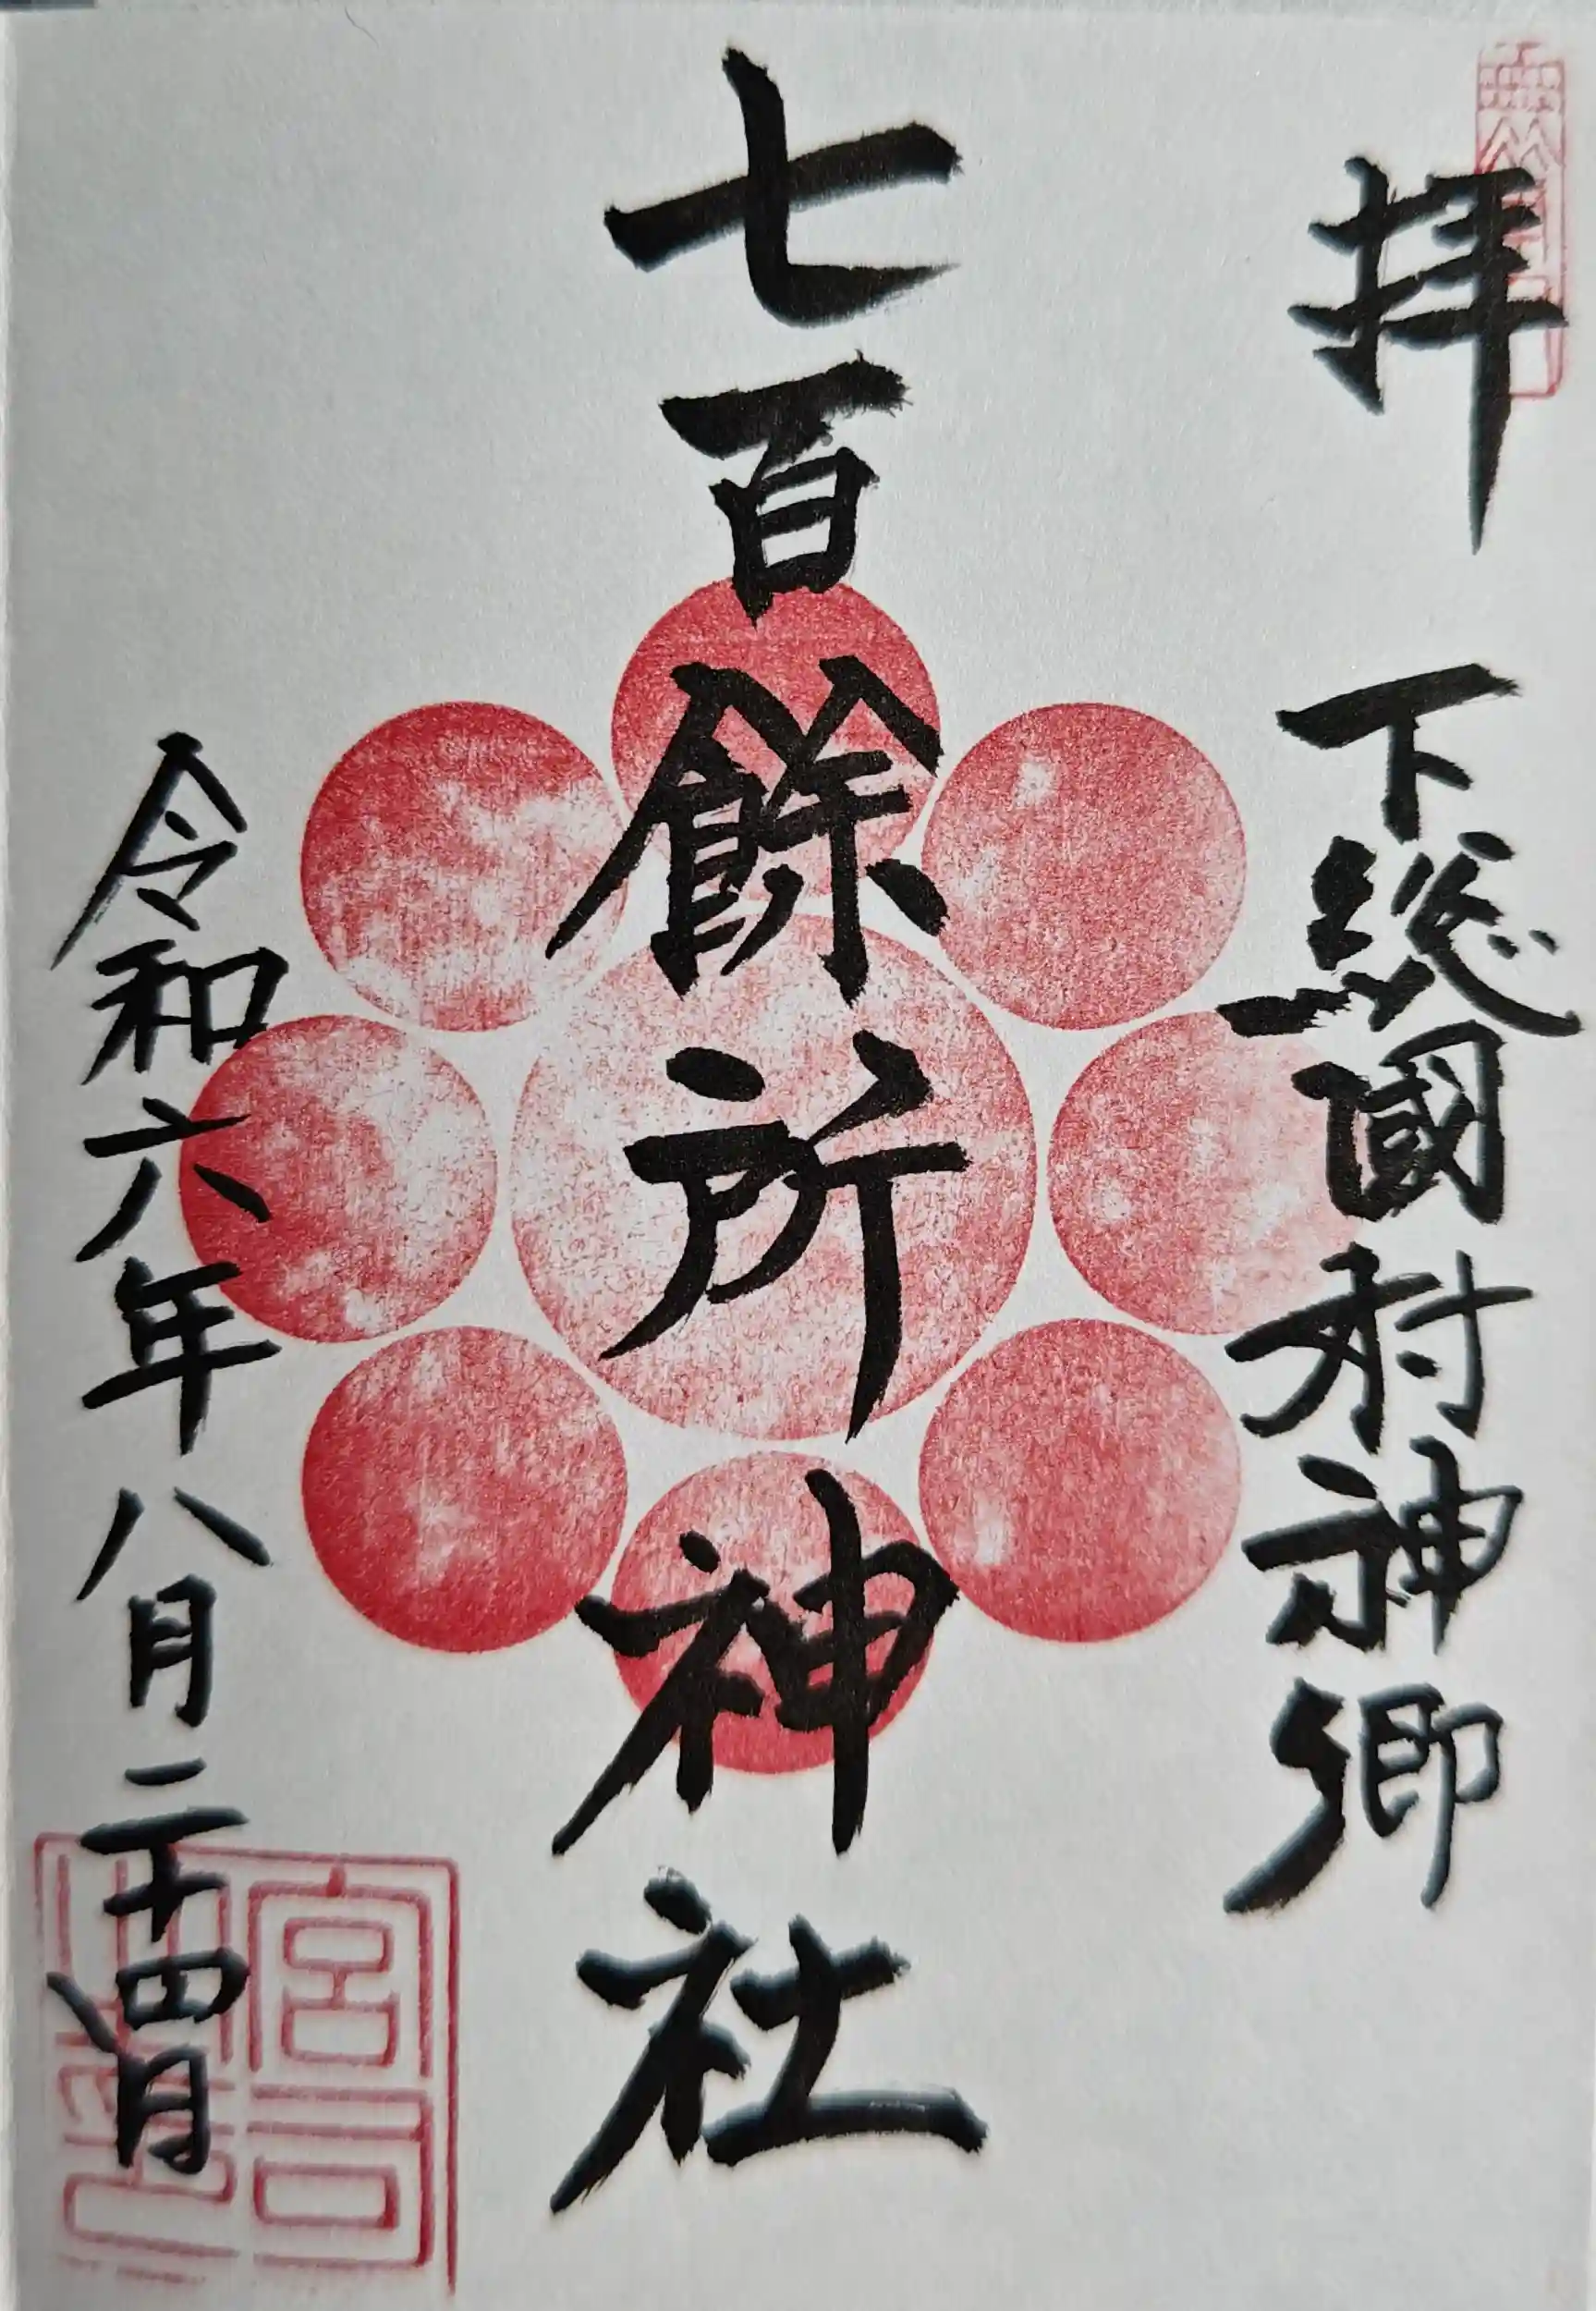 拝
下総國 村神郷
七百餘所神社
令和六年八月二十四日
宮司